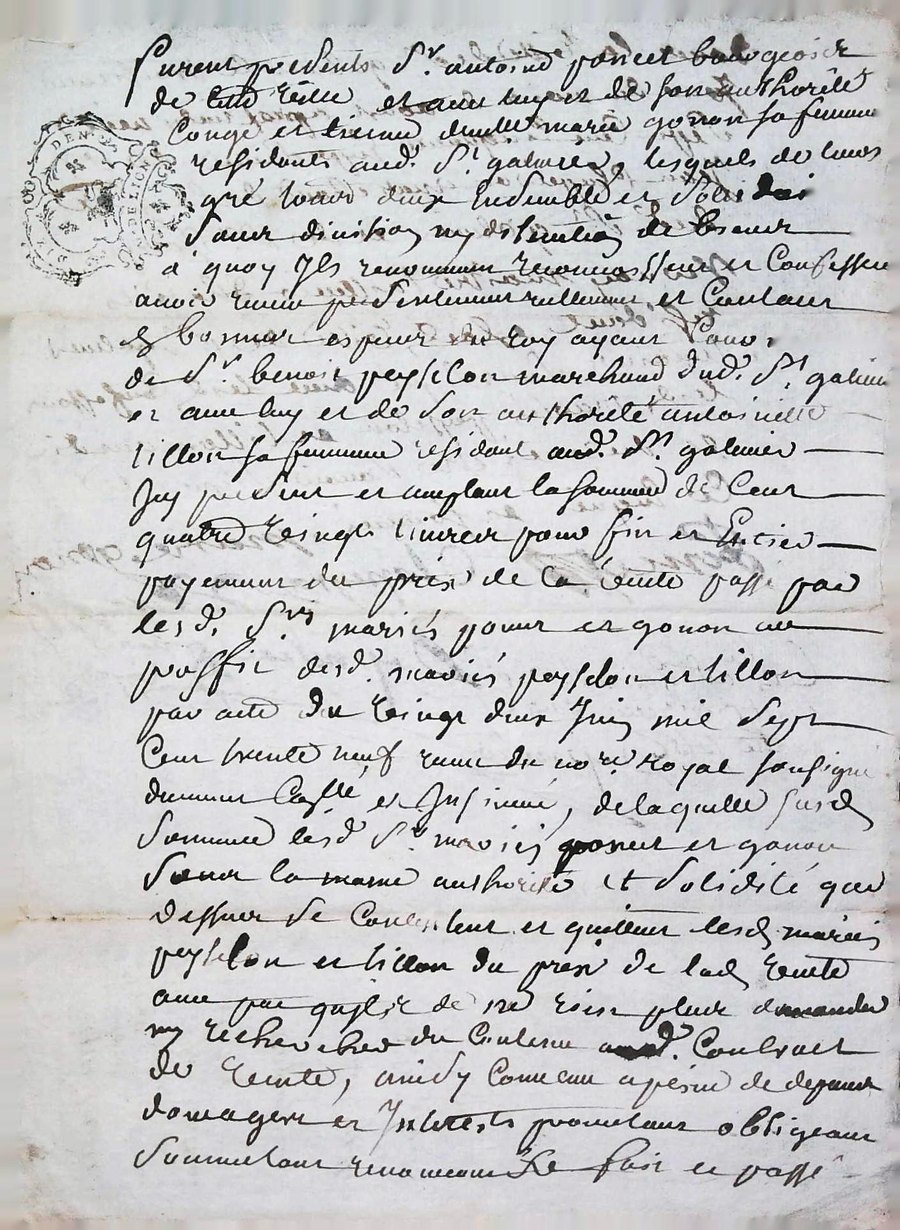 furent presents Sr. antoine poncet bourgeois
de cette ville et avec luy et de son authorité
Congé et licence demlle marie gonon sa femme
residants aud. St galmier, lesquels de leurs
gré tous deux ensemble et solidai
sans division ny discution de biens
a quoy Ils renoncent reconnoissent et Confessent
avoir receu presentement reellement et Contant
en bonnes especes du roy ayant Cours
de Sr. benoist peysselon marchand dud. St galmier
et avec luy et de son authorité antoinette
tillon sa femme residant aud. St. galmier
Icy present et acceptant la somme de Cent
quatre vingt livres pour fin et Entier
payement du prix de la vente passé par
lesd. Srs mariés poncet et gonon au
proffit desd. mariés peysselon et tillon
par acte du vingt deux Juin mil sept
Cent trente neuf receu du nore. Royal soussigné
duement Collé et Insinué, de laquelle susd
somme lesd. Sr mariés poncet et gonon
sous la meme authorité et solidité que
dessus se Contentent et quittent lesd mariés
peysselon et tillon du prix de lad vente
avec pacte de ne rien plus demander
ny rechercher du Contenu aud. Contract
de vente, ainsy Convenu a peine de depens
domages et Interests promettant obligeant
soumettant renonceant fait et passé